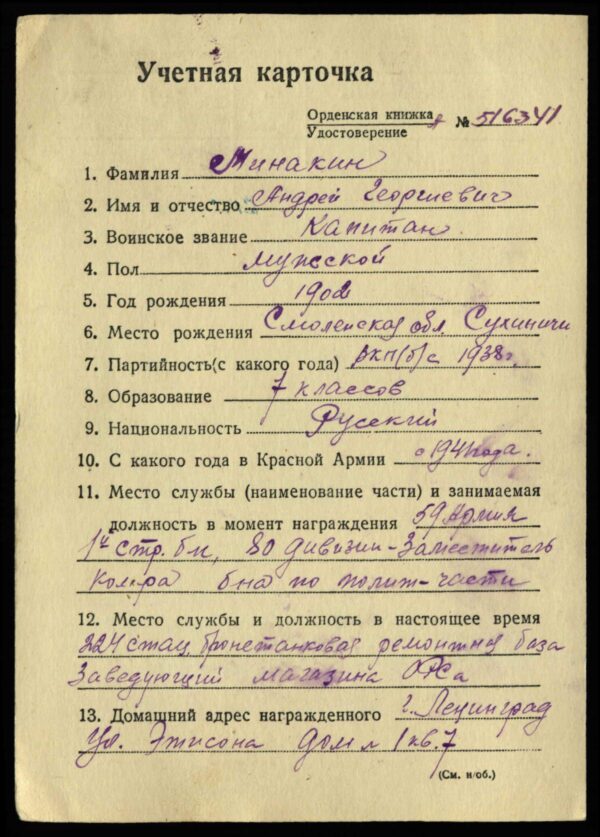 Учетная карточка
Орденская книжка
Удостоверение № 516341
1. Фамилия Минакин
2. Имя и отчество Андрей Георгиевич
3. Воинское звание Капитан
4. Пол мужской
5. Год рождения 1902
6. Место рождения Смоленская обл Сухиничи
7. Партийность(с какого года) вкп(б) с 1938г.
8. Образование 7 классов
9. Национальность Русский
10. С какого года в Красной Армии с 1941 года.
11. Место службы (наименование части) и занимаемая
должность в момент награждения 59 Армия
1й стр. бн, 80 дивизии-Заместитель
Ком-ра б-на по полит-части
12. Место службы и должность в настоящее время
224 стац бронетанковая ремонтная база
Заведующий магазина
13. Домашний адрес награжденного г. Ленинград
Ул. Эдисона дом 1 кв. 7
(См. н/об.)